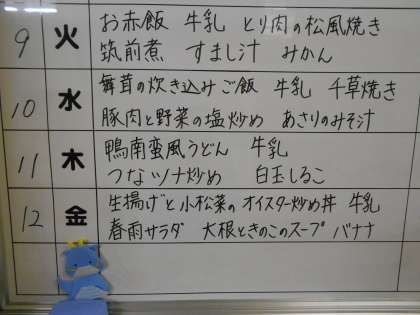 9 火 お赤飯 牛乳 とり肉の松風焼き
筑前煮 すまし汁 みかん
10 水 舞茸の炊き込みご飯 牛乳 千草焼き
豚肉と野菜の塩炒め あさりのみそ汁
11 木 鴨南蛮風うどん 牛乳
つなツナ炒め 白玉しるこ
12 金 生揚げと小松菜のオイスター炒め丼 牛乳
春雨サラダ 大根ときのこのスープ バナナ